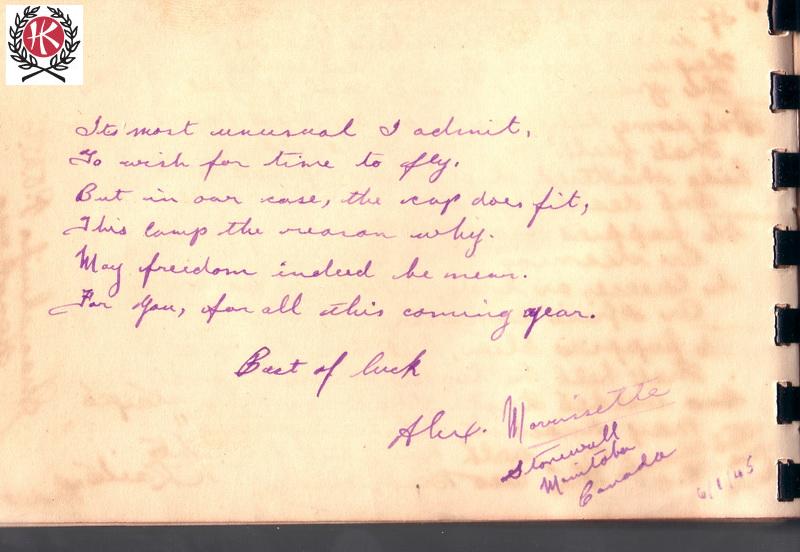 HK
Its' most unusual I admit,
To wish for time to fly.
But in our case, the cap does fit,
This camp the reason why.
May freedom indeed be near.
For You, for all this coming year.
Best of luck
Alex. Morrissette
Stonewall
Manitoba
Canada
6/1/45